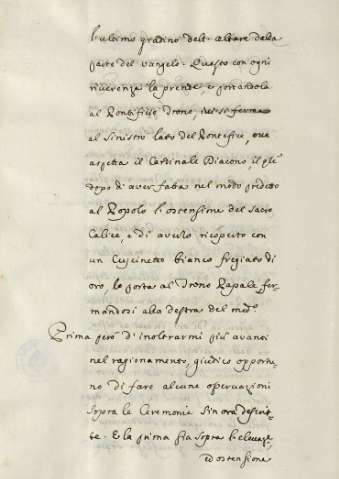 l'ultimo gradino dell'Altare dalla
parte del Vangelo. Questo con ogni
riverenza la prende, e portandola
al Pontificio Trono, ivi si ferma
al sinistro lato del Pontefice, ove
aspetta il Cardinale Diacono, il qle
dopo di aver fatta nel modo pridetto
al Popolo l'ostensione del Sacro
Calice, e di averlo ricoperto con
un Cuscinetto bianco fregiato di
oro, lo porta al Trono Papale fer-
mandosi alla destra del medo.
Prima però d'inoltrarmi più avanti
nel ragionamento, giudico opportu-
no di fare alcune osservazioni
sopra le Ceremonie sin ora descrit-
te. E la prima sia sopra l'elevaze,
ed ostensione